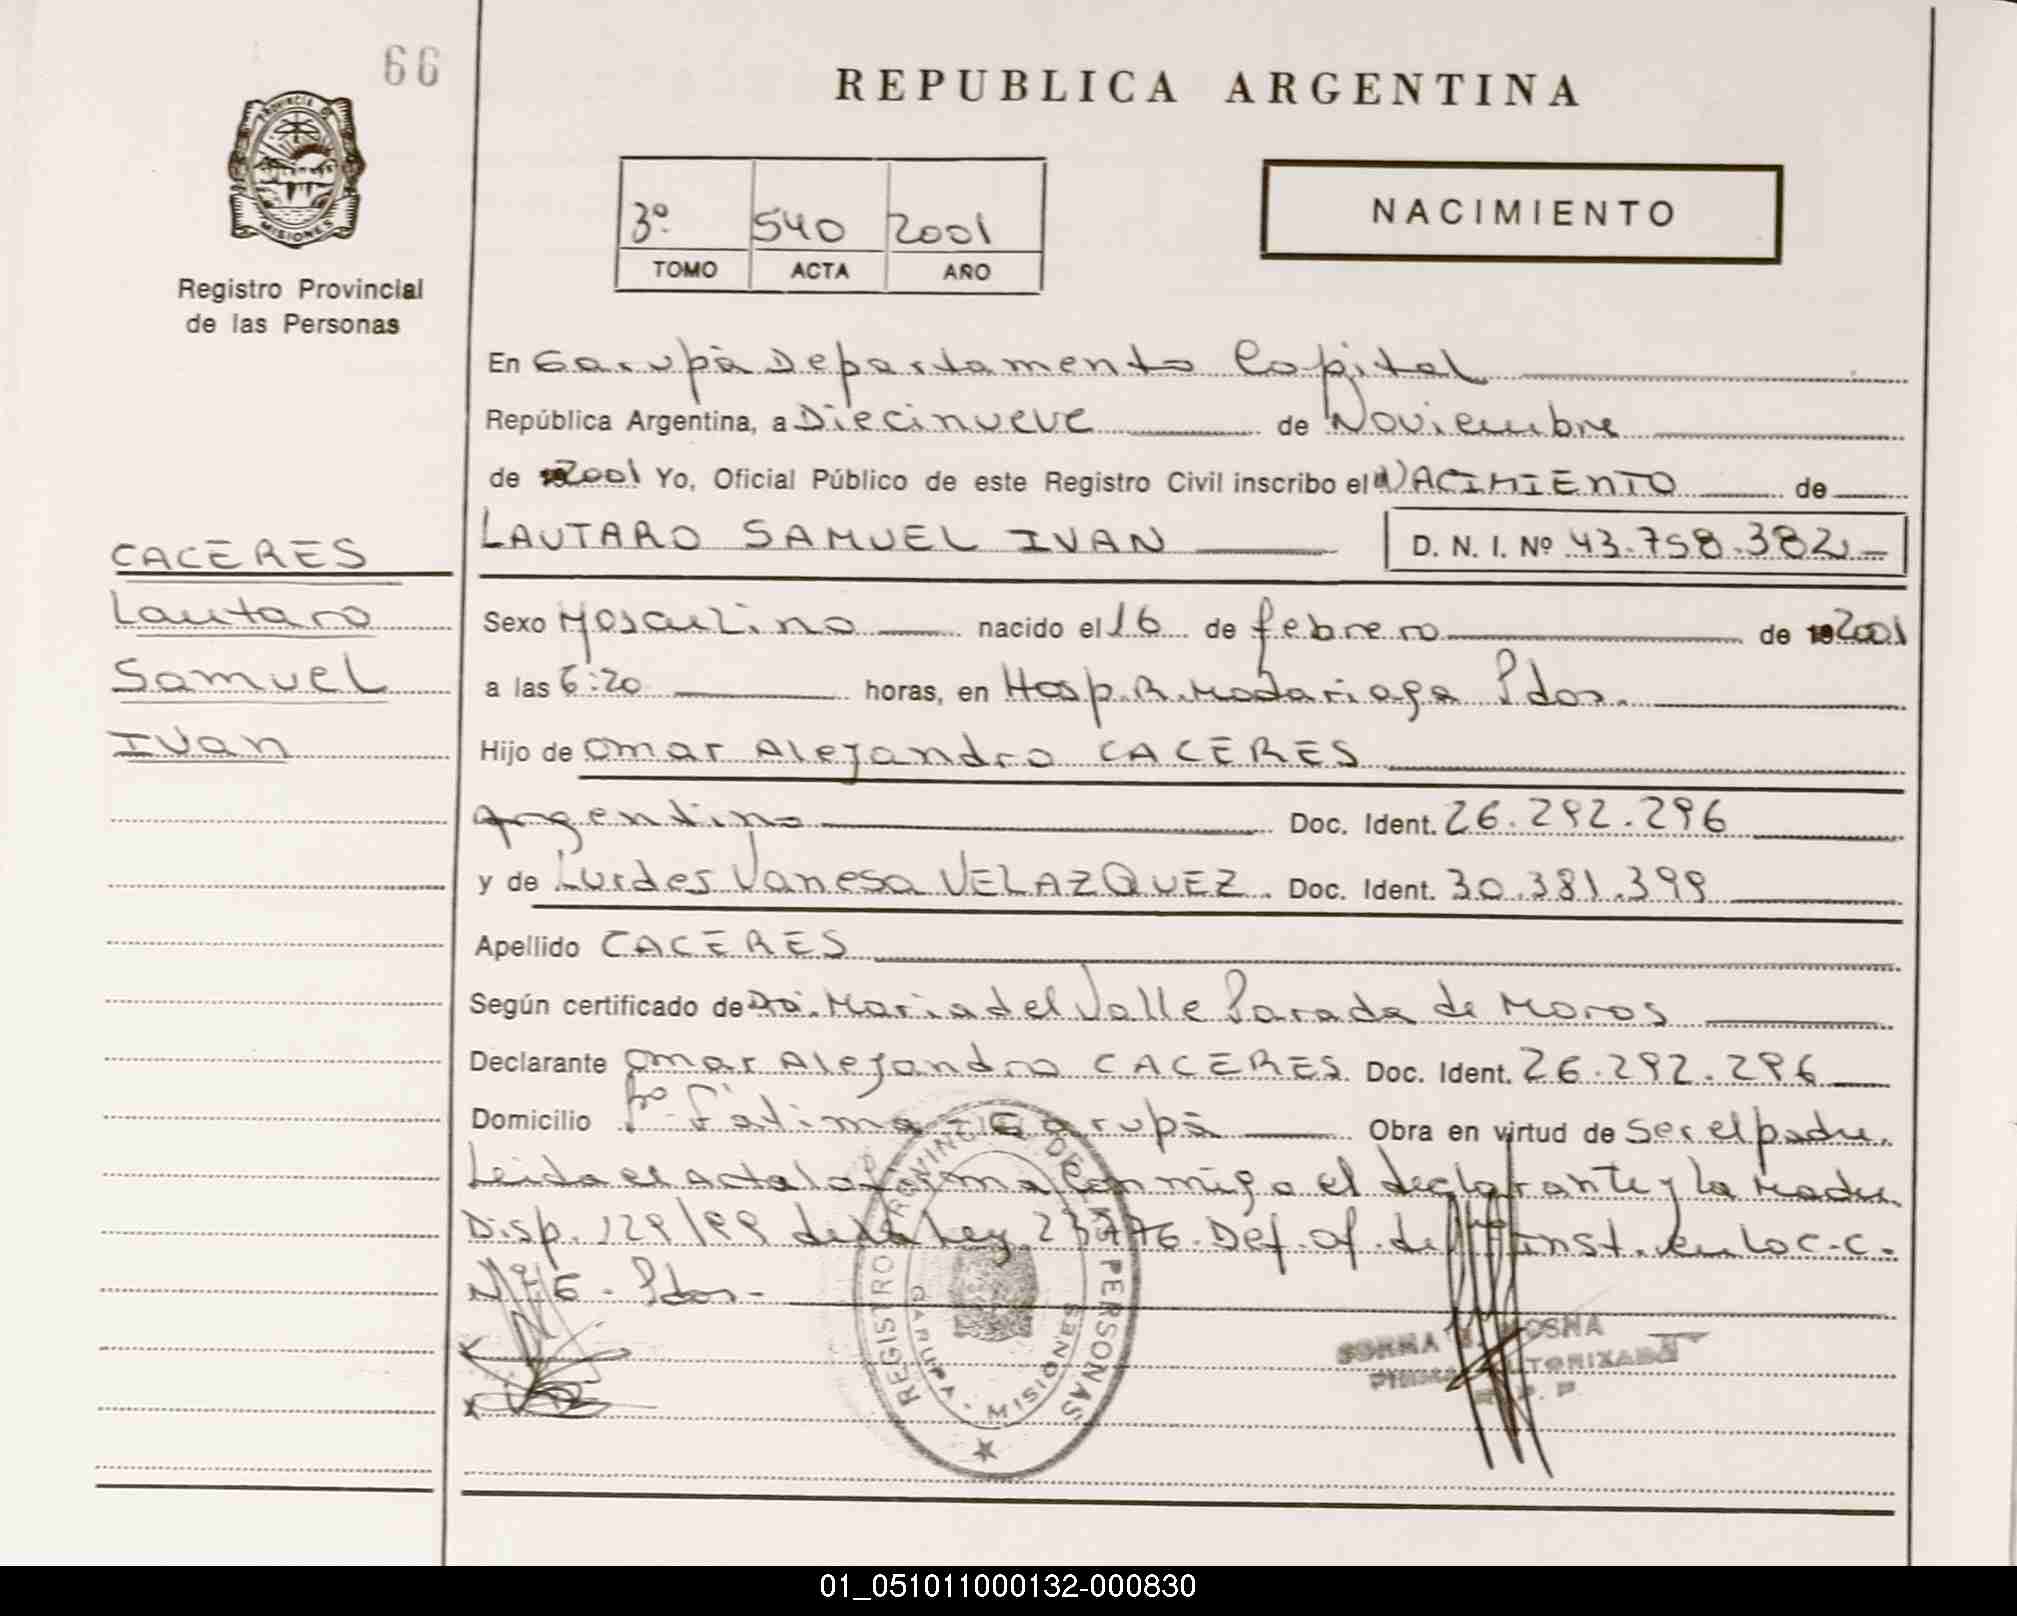 66
PROVINCIA DE
MISIONES
Registro Provincial
de las Personas
REPUBLICA ARGENTINA
3º 540 2001
TOMO ACTA AÑO
NACIMIENTO
En Garupá Departamento Capital
República Argentina, a Diecinueve de Noviembre
de 2001 Yo, Oficial Público de este Registro Civil inscribo el NACIMIENTO de
LAUTARO SAMUEL IVAN D. N. I. Nº 43.758.382
CACERES
Lautaro
Samuel
Ivan
Sexo Masculino nacido el 16 de febrero de 2001
a las 6:20 horas, en Hosp. R. Madariaga Pdas.
Hijo de Omar Alejandro CACERES
Argentino Doc. Ident. 26.292.296
y de Lurdes Vanesa VELAZQUEZ Doc. Ident. 30.381.399
Apellido CACERES
Según certificado de Dra. Maria del Valle Parada de Moros
Declarante Omar Alejandro CACERES Doc. Ident. 26.292.296
Domicilio Bº Fatima - Garupá Obra en virtud de Ser el padre.
Leida el acta la firma conmigo el declarante y la Madre.
Disp. 129/99 de la Ley 23776. Def. of. de Inst. en lo C.C.
Nº 6 - Pdas -
REGISTRO PROVINCIAL DE PERSONAS
GARUPA - MISIONES
NORMA
AUTORIZADA
R. P. P
01_051011000132-000830